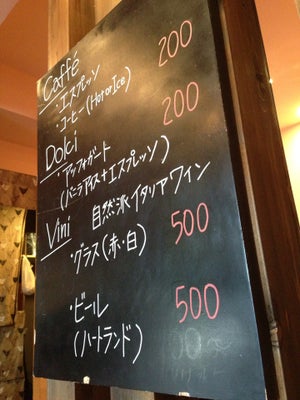 Caffé
・エスプレッソ 200
・コーヒー(Hot or Ice)
Dolci 200
・アッフォガード
(バニラアイス+エスプレッソ)
Vini 自然派イタリアワイン
・グラス(赤・白) 500
・ビール 500
(ハートランド)